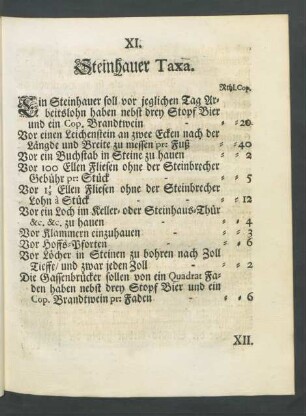 XI.
Steinhauer Taxa.
Rthl. Cop.
Ein Steinhauer soll vor jeglichen Tag Ar-
beitslohn haben nebst drey Stopf Bier
und ein Cop. Brandtwein - - 20
Vor einen Leichenstein an zwee Ecken nach der
Längde und Breite zu messen pr: Fuß 40
Vor ein Buchstab in Steine zu hauen - 2
Vor 100 Ellen Fliesen ohne der Steinbrecher
Gebühr pr: Stück - - 5
Vor 1½ Ellen Fliesen ohne der Steinbrecher
Lohn à Stück - - 12
Vor ein Loch im Keller- oder Steinhaus-Thür
&c. &c. zu hauen - - 4
Vor Klammern einzuhauen - - 3
Vor Hoffs-Pforten - - 6
Vor Löcher in Steinen zu bohren nach Zoll
Tieffe/ und zwar jeden Zoll - - 2
Die Gassenbrücker sollen von ein Quadrat Fa-
den haben nebst drey Stopf Bier und ein
Cop. Brandtwein pr: Faden - - 6
XII.